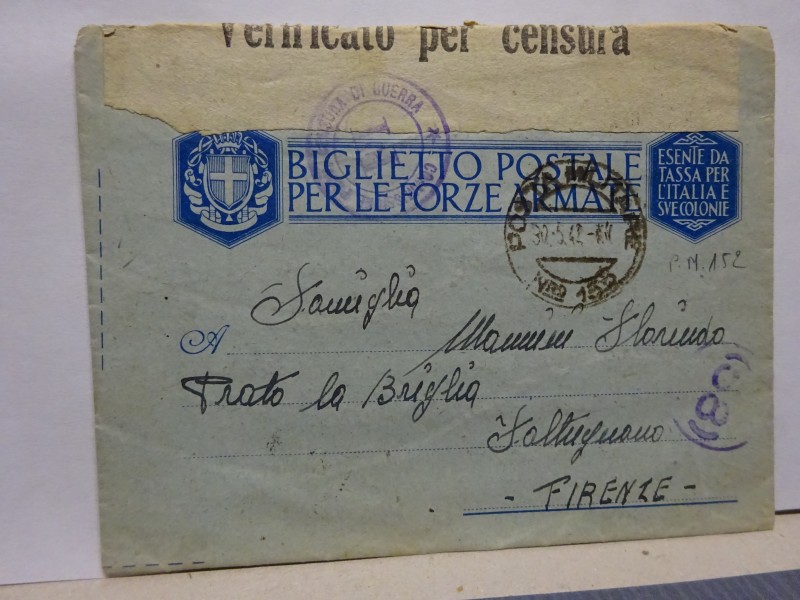 Verificato per censura
CENSURA DI GUERRA
BIGLIETTO POSTALE
PER LE FORZE ARMATE
ESENTE DA
TASSA PER
L'ITALIA E
SVE COLONIE
POSTA MILITARE
30.5.42
Nro 152
P.M. 152
Famiglia
A Mannini Florindo
Prato la Briglia
(88)
- FIRENZE -